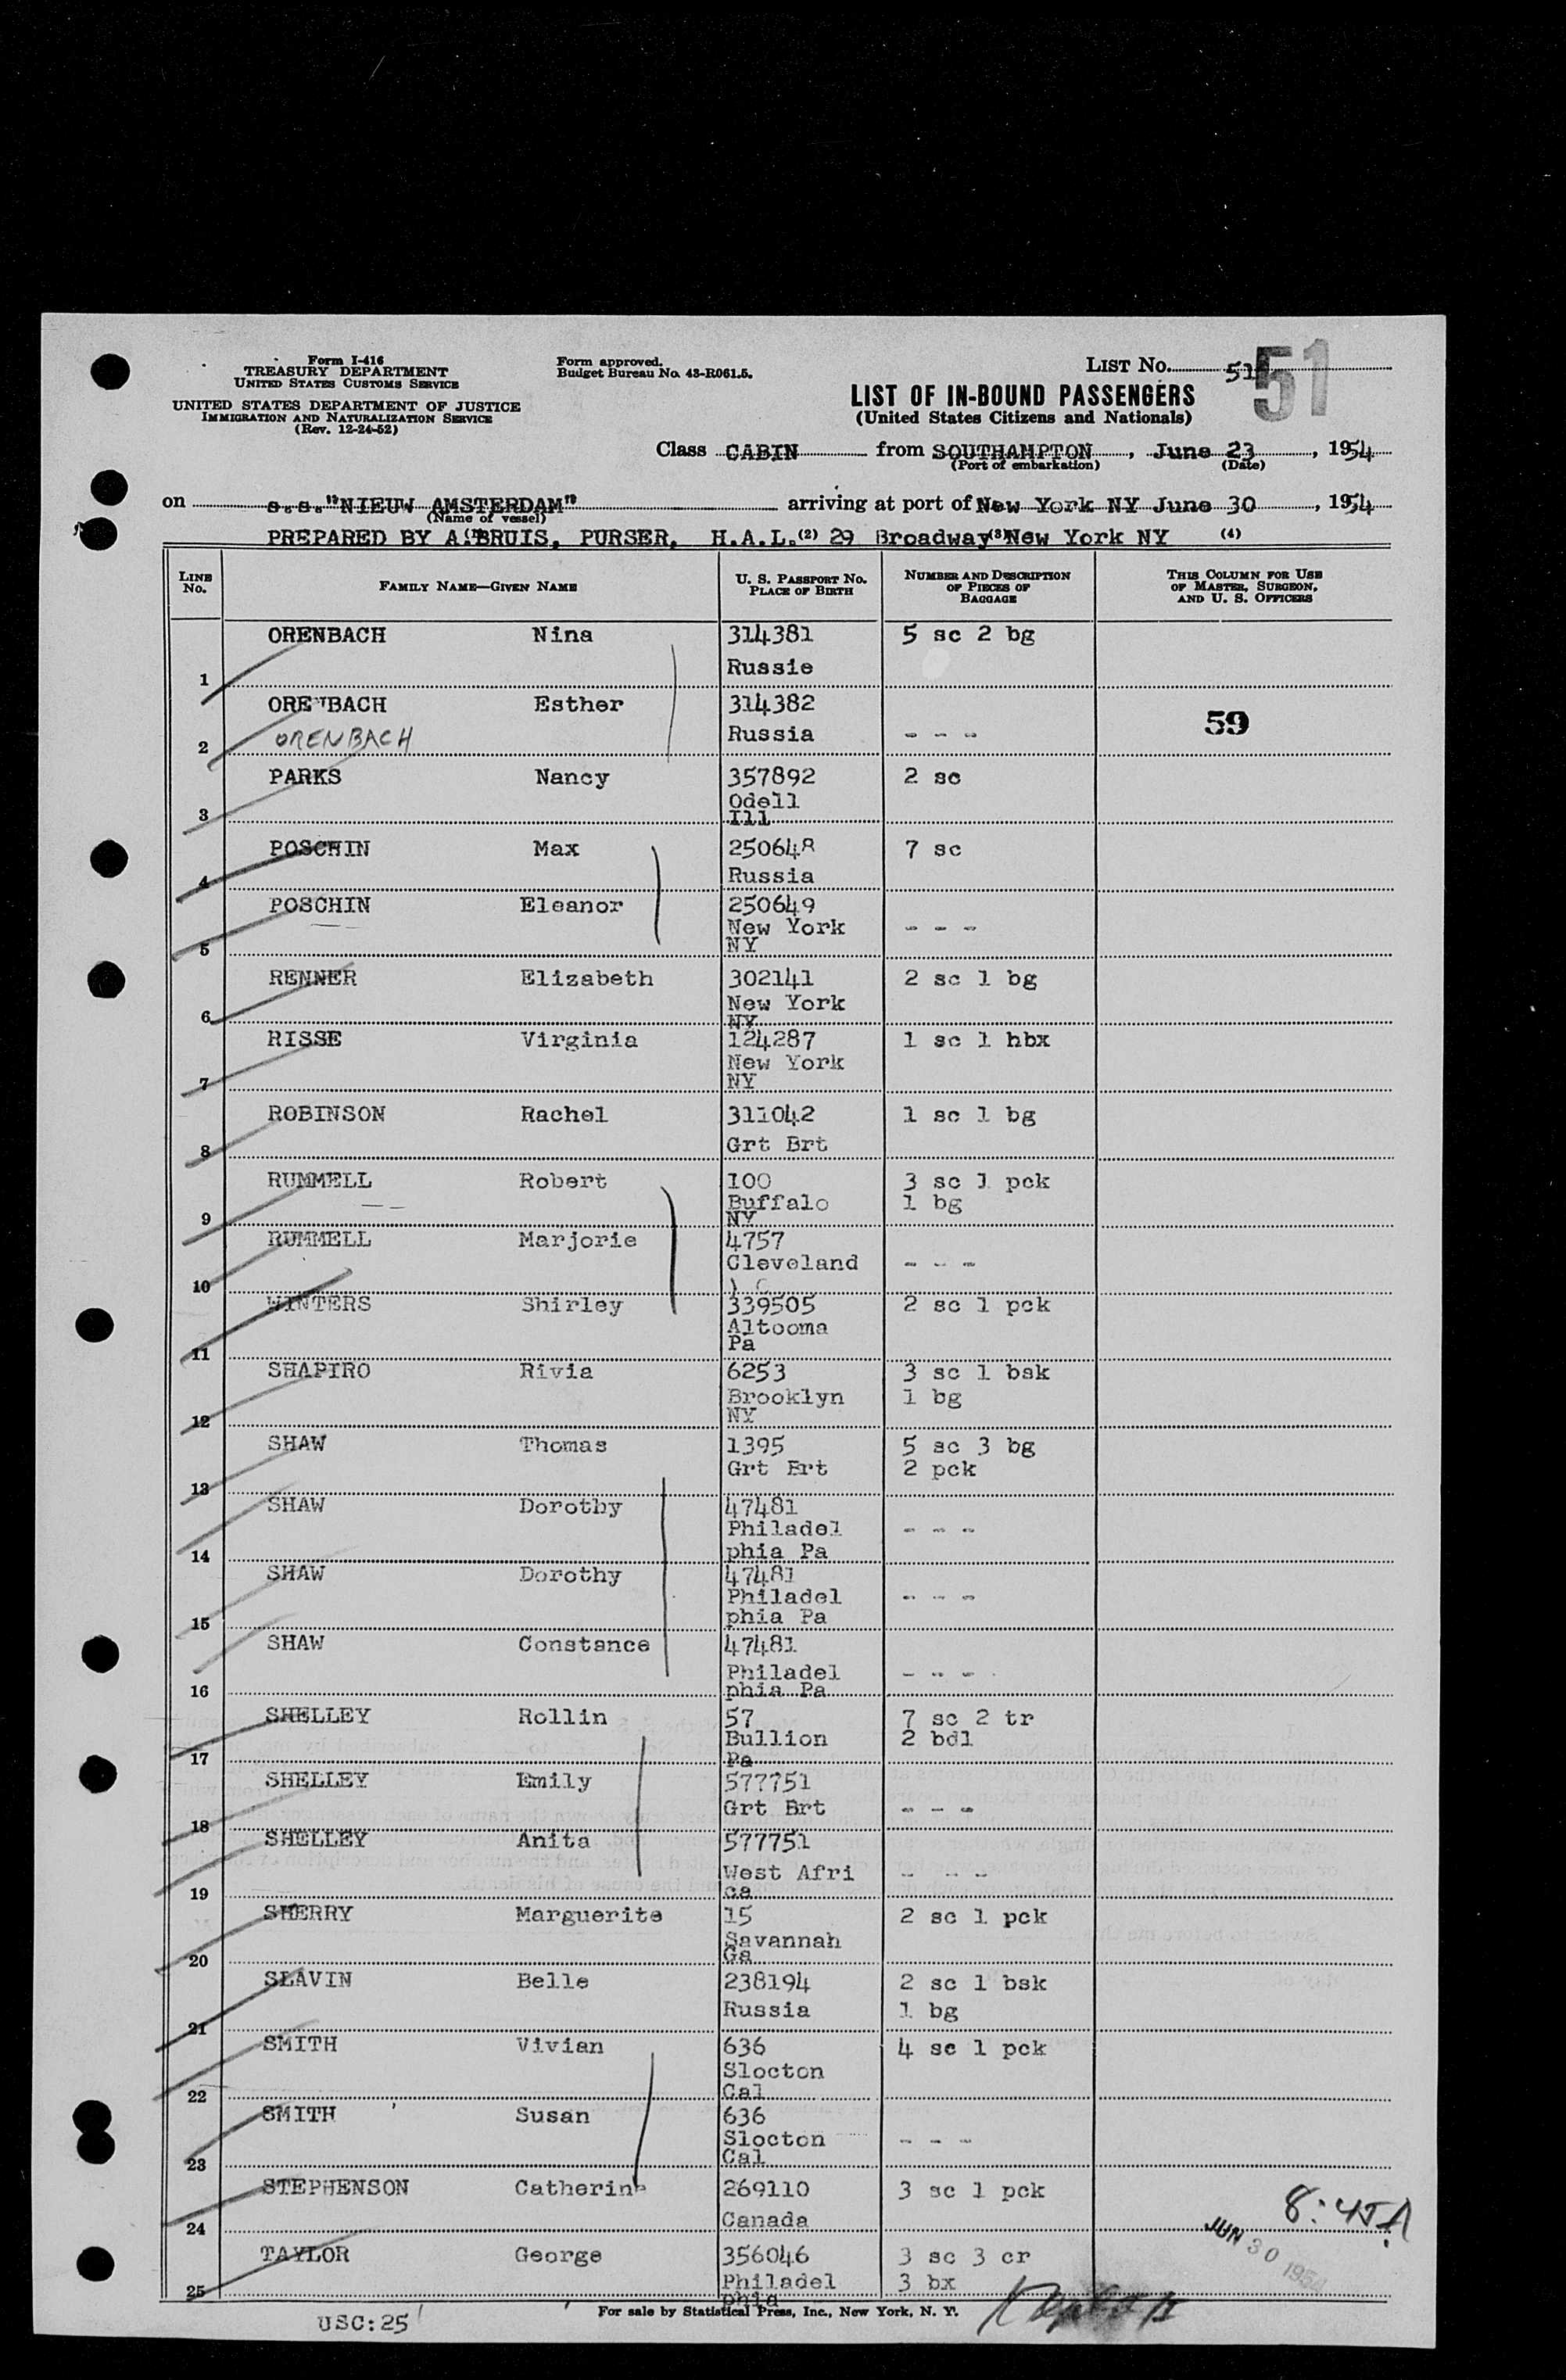 Form I-416
TREASURY DEPARTMENT
UNITED STATES CUSTOMS SERVICE
UNITED STATES DEPARTMENT OF JUSTICE
IMMIGRATION AND NATURALIZATION SERVICE
(Rev. 12-24-52)
Form approved.
Budget Bureau No. 43-R061.5.
LIST No. 51
51
LIST OF IN-BOUND PASSENGERS
(United States Citizens and Nationals)
Class CABIN from SOUTHAMPTON, June 23, 1954
(Port of embarkation) (Date)
on s.s. "NIEUW AMSTERDAM" arriving at port of New York NY June 30, 1954
(Name of vessel)
PREPARED BY A. BRUIS, PURSER, H.A.L. (2) 29 Broadway (3) New York NY (4)
LINE No. FAMILY NAME—GIVEN NAME U. S. PASSPORT No. PLACE OF BIRTH NUMBER AND DESCRIPTION OF PIECES OF BAGGAGE THIS COLUMN FOR USE OF MASTER, SURGEON, AND U. S. OFFICERS
ORENBACH Nina 314381 5 sc 2 bg
1 Russie
ORENBACH Esther 314382
2 ORENBACH Russia - - - 59
PARKS Nancy 357892 2 sc
Odell
3 Ill
POSCHIN Max 250648 7 sc
4 Russia
POSCHIN Eleanor 250649
New York - - -
5 NY
RENNER Elizabeth 302141 2 sc 1 bg
New York
6 NY
RISSE Virginia 124287 1 sc 1 hbx
New York
7 NY
ROBINSON Rachel 311042 1 sc 1 bg
8 Grt Brt
RUMMELL Robert 100 3 sc 1 pck
Buffalo 1 bg
9 NY
RUMMELL Marjorie 4757
Cleveland - - -
10
WINTERS Shirley 339505 2 sc 1 pck
Altooma
11 Pa
SHAPIRO Rivia 6253 3 sc 1 bsk
Brooklyn 1 bg
12 NY
SHAW Thomas 1395 5 sc 3 bg
13 Grt Brt 2 pck
SHAW Dorothy 47481
Philadel - - -
14 phia Pa
SHAW Dorothy 47481
Philadel - - -
15 phia Pa
SHAW Constance 47481
Philadel - - -
16 phia Pa
SHELLEY Rollin 57 7 sc 2 tr
Bullion 2 bdl
17 Pa
SHELLEY Emily 577751
18 Grt Brt - - -
SHELLEY Anita 577751
West Afri - - -
19 ca
SHERRY Marguerite 15 2 sc 1 pck
Savannah
20 Ga
SLAVIN Belle 238194 2 sc 1 bsk
21 Russia 1 bg
SMITH Vivian 636 4 sc 1 pck
Slocton
22 Cal
SMITH Susan 636
Slocton - - -
23 Cal
STEPHENSON Catherine 269110 3 sc 1 pck
24 Canada
8:45A
JUN 30 1954
TAYLOR George 356046 3 sc 3 cr
Philadel 3 bx
25 phia
For sale by Statistical Press, Inc., New York, N. Y.
USC:25